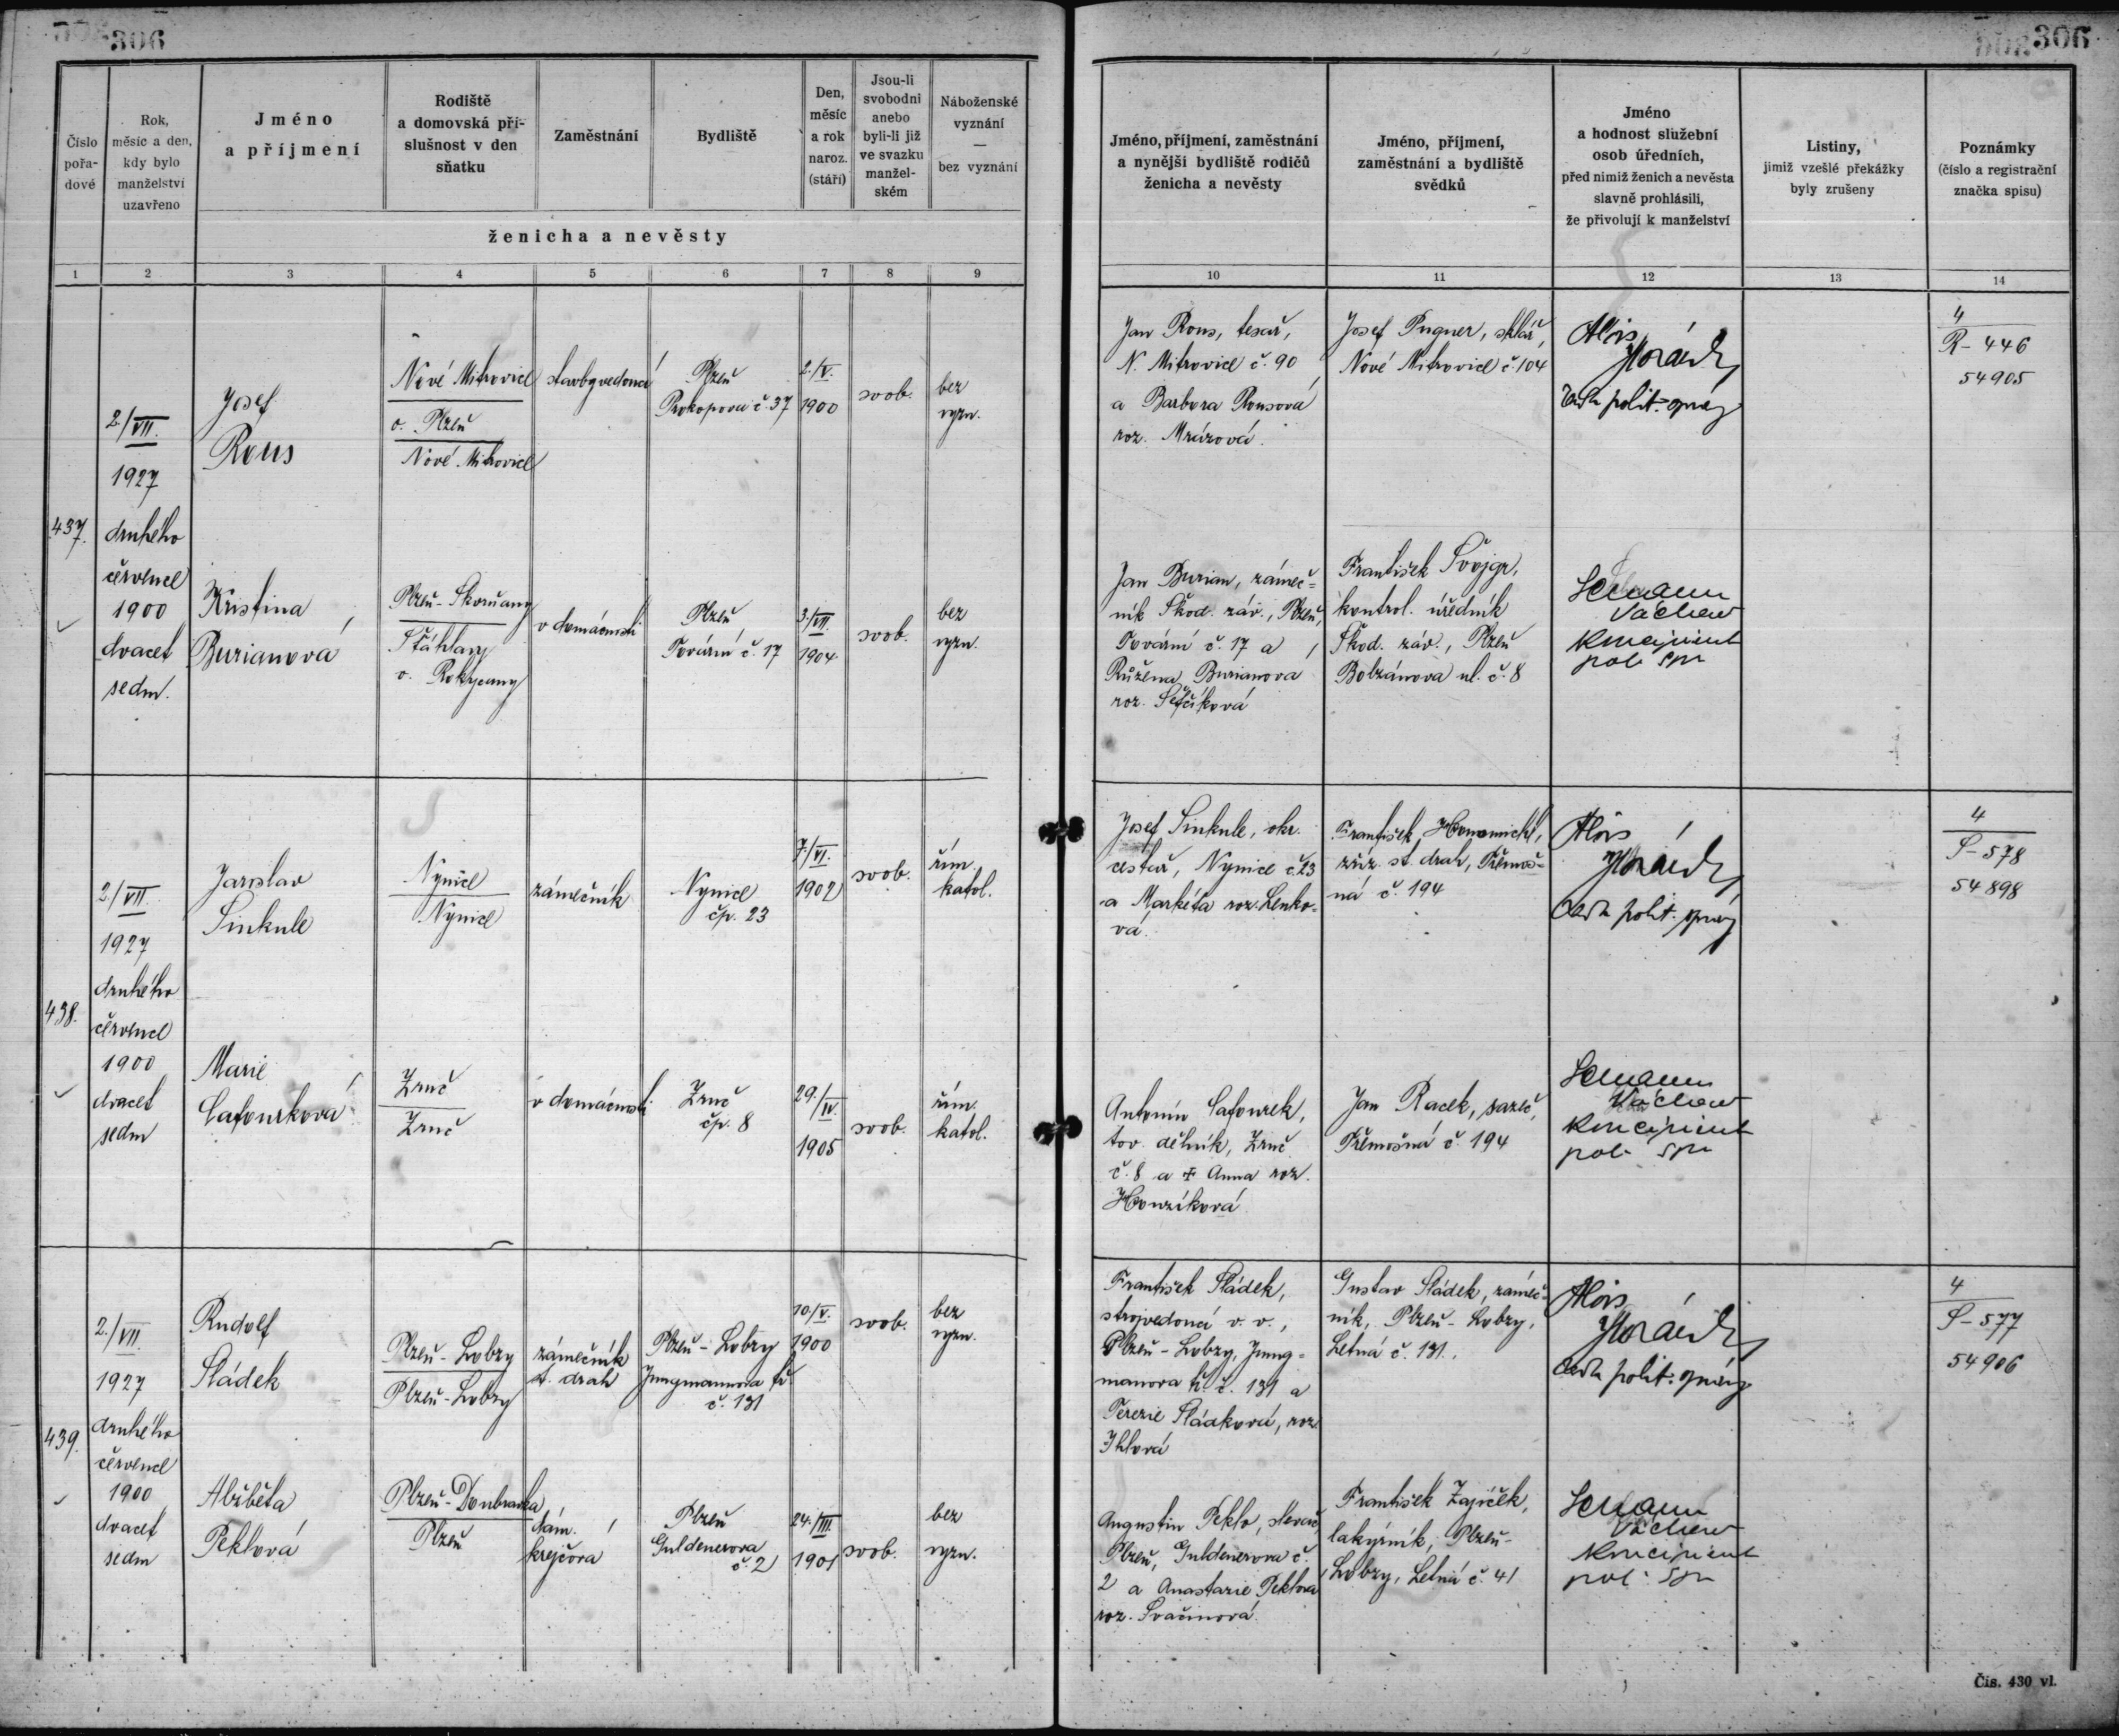 306
306
Číslo
pořa-
dové
Rok,
měsíc a den,
kdy bylo
manželství
uzavřeno
Jméno
a příjmení
Rodiště
a domovská pří-
slušnost v den
sňatku
Zaměstnání
Bydliště
Den,
měsíc
a rok
naroz.
(stáří)
Jsou-li
svobodni
anebo
byli-li již
ve svazku
manžel-
ském
Náboženské
vyznání
—
bez vyznání
ženicha a nevěsty
Jméno, příjmení, zaměstnání
a nynější bydliště rodičů
ženicha a nevěsty
Jméno, příjmení,
zaměstnání a bydliště
svědků
Jméno
a hodnost služební
osob úředních,
před nimiž ženich a nevěsta
slavně prohlásili,
že přivolují k manželství
Listiny,
jimiž vzešlé překážky
byly zrušeny
Poznámky
(číslo a registrační
značka spisu)
1 2 3 4 5 6 7 8 9 10 11 12 13 14
437.
2./VII.
1927
druhého
července
1900
dvacet
sedm.
Josef
Rous
Nové Mitrovice
o. Plzeň
Nové Mitrovice
stavbyvedoucí
Plzeň
Prokopova č. 37
2./V.
1900
svob.
bez
vyzn.
Jan Rous, tesař,
N. Mitrovice č. 90
a Barbora Rousová
roz. Mrázová.
Josef Pugner, sklář,
Nové Mitrovice č. 104
Alois
polit. správy
4
R-446
54905
Kristina
Burianová
Plzeň-Skvrňany
Šťáhlavy
o. Rokycany
v domácnosti
Plzeň
Tovární č. 17
3./VII.
1904
svob.
bez
vyzn.
Jan Burian, zámeč-
ník Škod. záv., Plzeň,
Tovární č. 17 a
Růžena Burianová
roz. Šefčíková
František Švojgr,
kontrol. úředník
Škod. záv., Plzeň
Bolzánova ul. č. 8
Václav
koncipient
pol. spr
438.
2./VII.
1927
druhého
července
1900
dvacet
sedm
Jaroslav
Sinkule
Nynice
Nynice
zámečník
Nynice
čp. 23
7./VI.
1902
svob.
řím.
katol.
Josef Sinkule, okr.
cestář, Nynice č. 23
a Markéta roz. Lenko-
vá.
František
zříz. st. drah, Třemoš-
ná č. 194
Alois
polit. správy
4
S-578
54898
Marie
Cafourková
Zruč
Zruč
v domácnosti
Zruč
čp. 8
29./IV.
1905
svob.
řím.
katol.
Antonín Cafourek,
tov. dělník, Zruč
č. 8 a + Anna roz.
Honzíková
Jan Racek,
Třemošná č. 194
Václav
koncipient
pol. spr
439.
2./VII.
1927
druhého
července
1900
dvacet
sedm
Rudolf
Sládek
Plzeň-Lobzy
Plzeň-Lobzy
zámečník
st. drah
Plzeň-Lobzy
Jungmannova tř.
č. 131
10./V.
1900
svob.
bez
vyzn.
František Sládek,
strojvedoucí v. v.,
Plzeň-Lobzy, Jung-
manova tř. č. 131 a
Terezie Sládková, roz.
Ihlová
Gustav Sládek, zámeč-
ník, Plzeň-Lobzy,
Letná č. 131.
Alois
polit. správy
4
S-577
54906
Alžběta
Peklová
Plzeň-Doubravka
Plzeň
dám.
krejčová
Plzeň
Guldenerova
č. 2
24./III.
1901
svob.
bez
vyzn.
Augustin Peklo, slevač
Plzeň, Guldenerova č.
2 a Anastazie Peklová
roz. Svačinová
František Zajíček,
lakýrník, Plzeň-
Lobzy, Letná č. 41
Václav
koncipient
pol. spr
Čís. 430 vl.